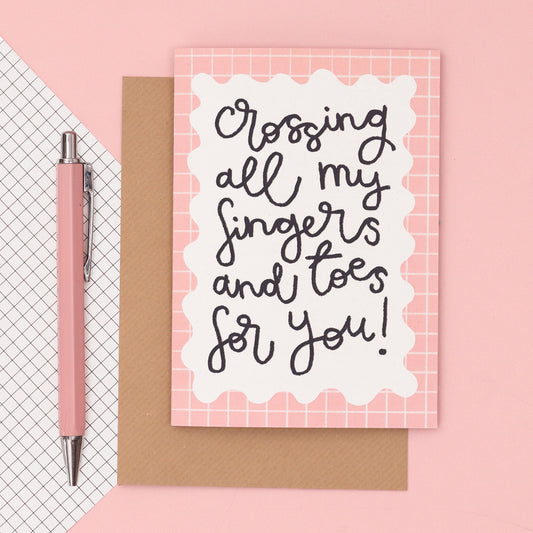 crossing
all my
fingers
and toes
for you!